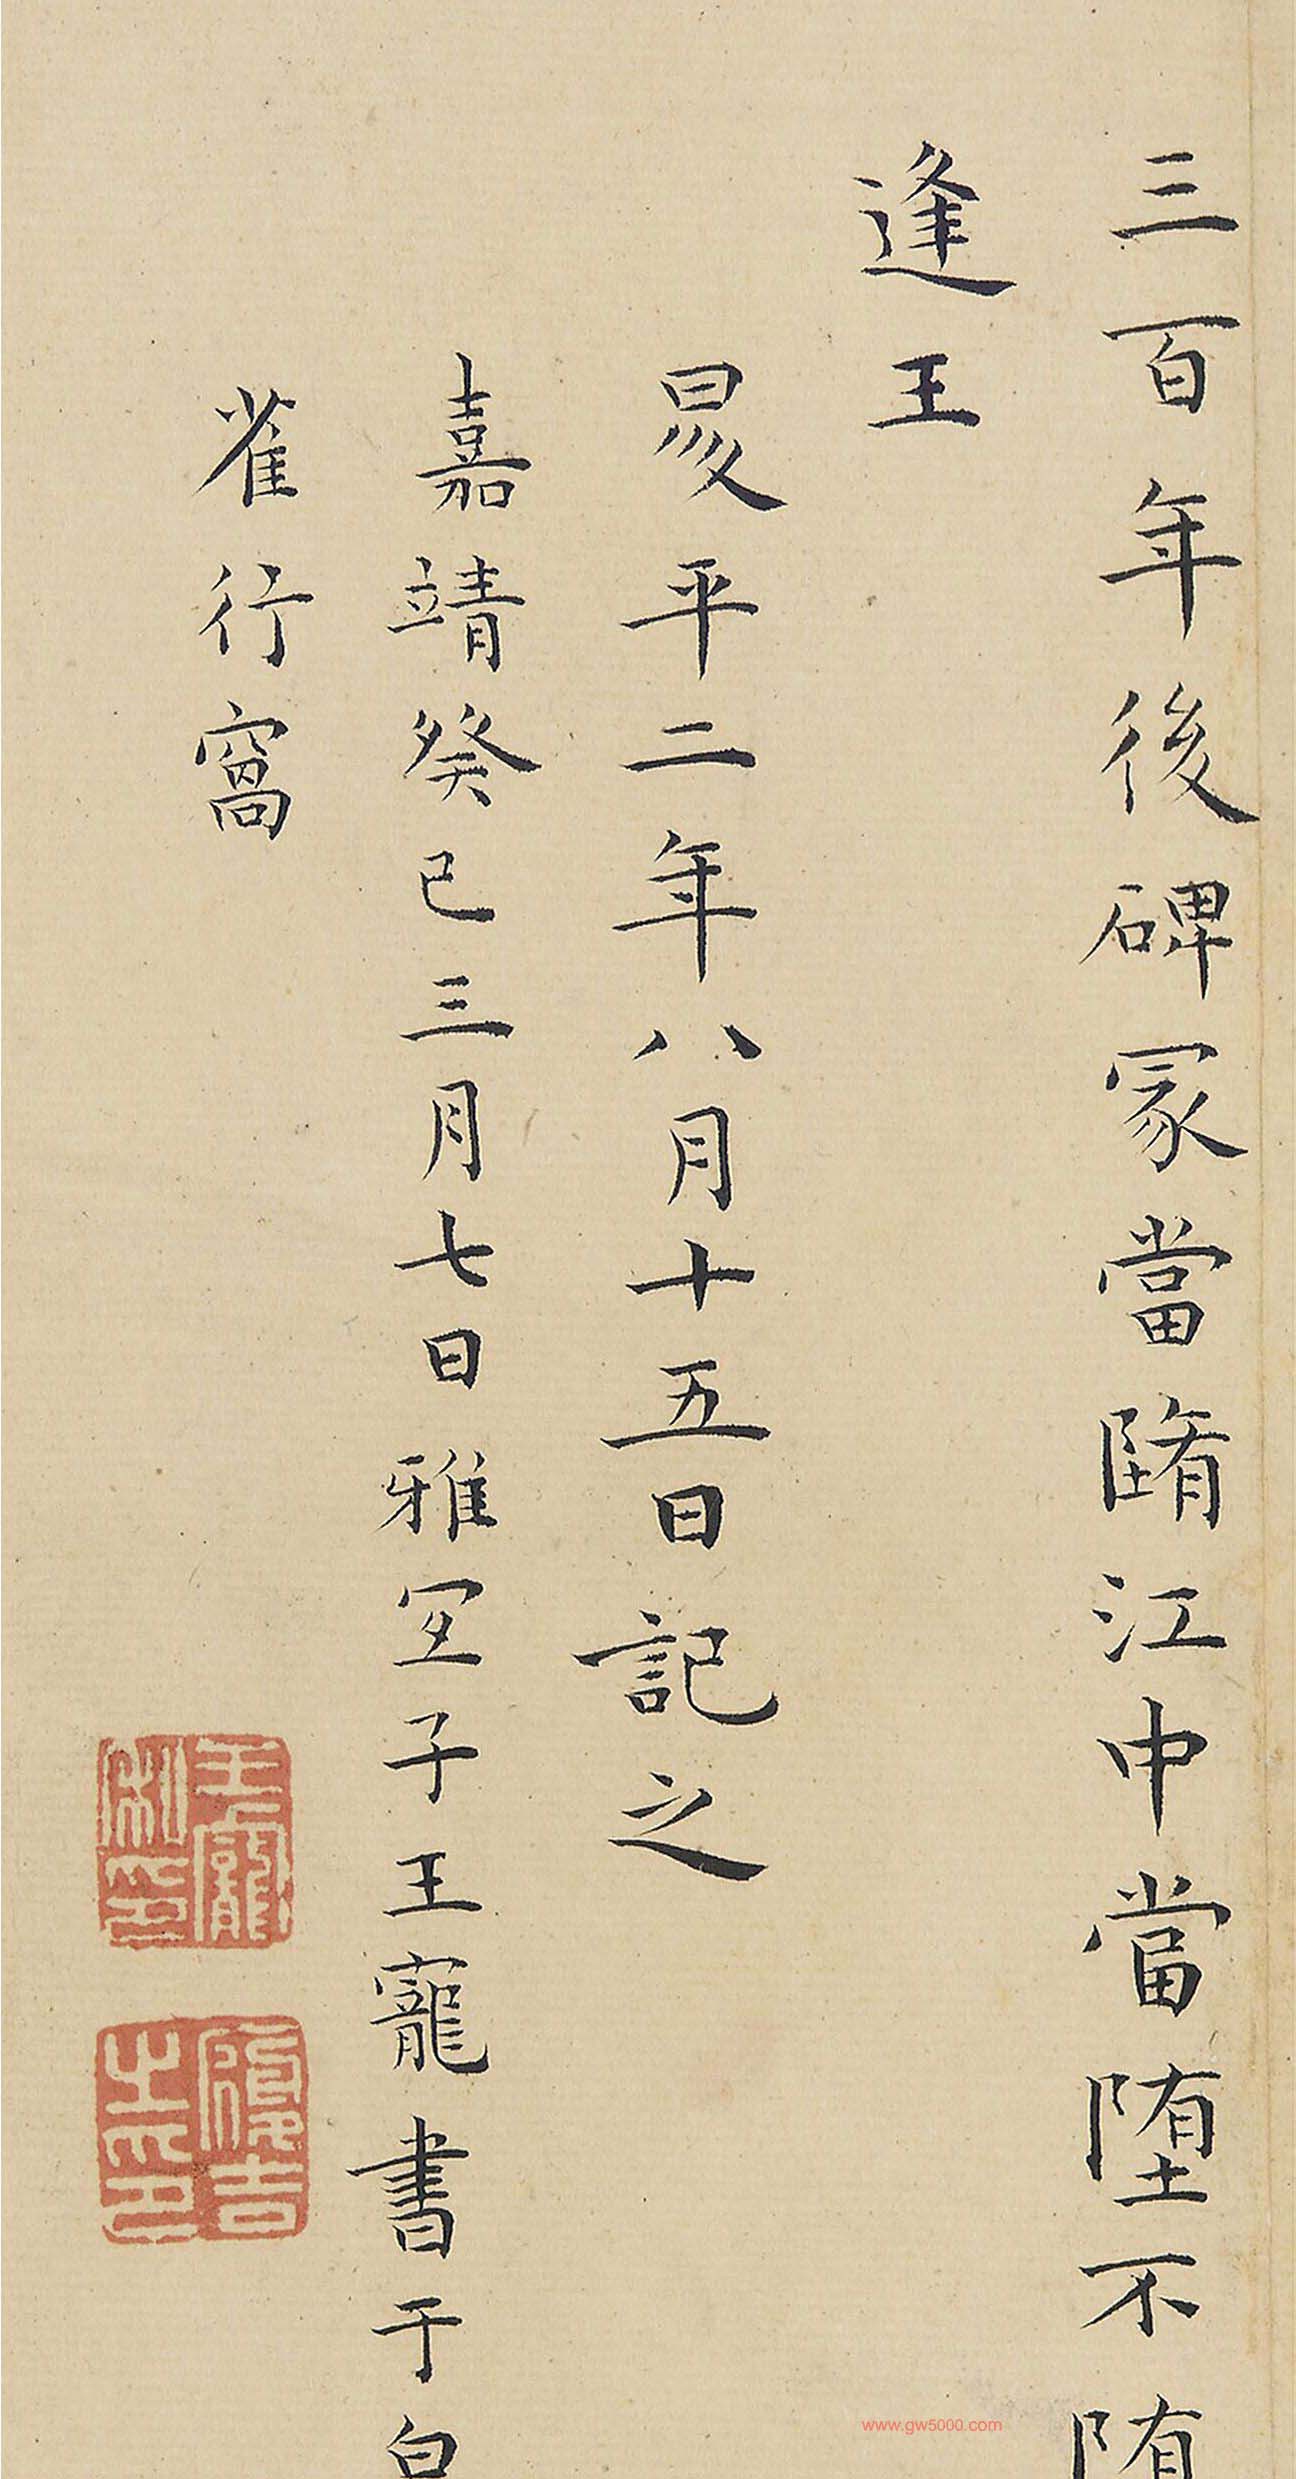 三百年後碑冢當墮江中當墮不墮
逢王
昇平二年八月十五日記之
嘉靖癸巳三月七日雅宜子王寵書于白
雀行窩
王寵私印
履吉之印
www.gw5000.com